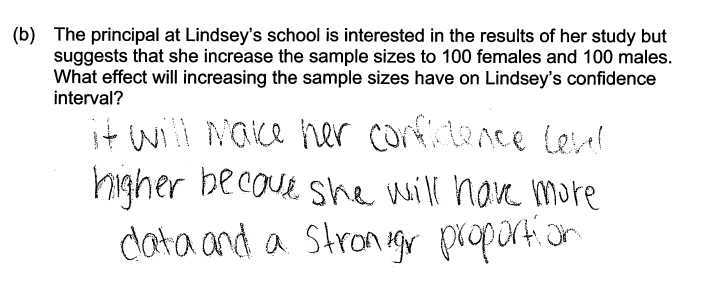 (b) The principal at Lindsey's school is interested in the results of her study but
suggests that she increase the sample sizes to 100 females and 100 males.
What effect will increasing the sample sizes have on Lindsey's confidence
interval?
it will make her confidence level
higher becaue she will have more
data and a strongr proportion